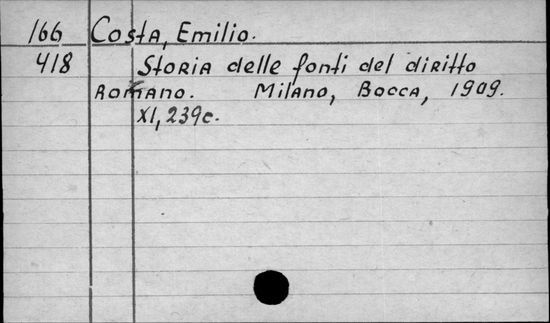 166 Costa, Emilio.
418 Storia delle fonti del diritto
Romano. Milano, Bocca, 1909.
XI, 239c.